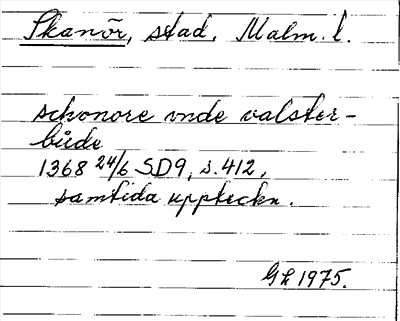 Skanör, stad, Malm. l.
schonore vnde valster-
bůde
1368 24/6 SD9, s. 412,
samtida uppteckn.
GL 1975.